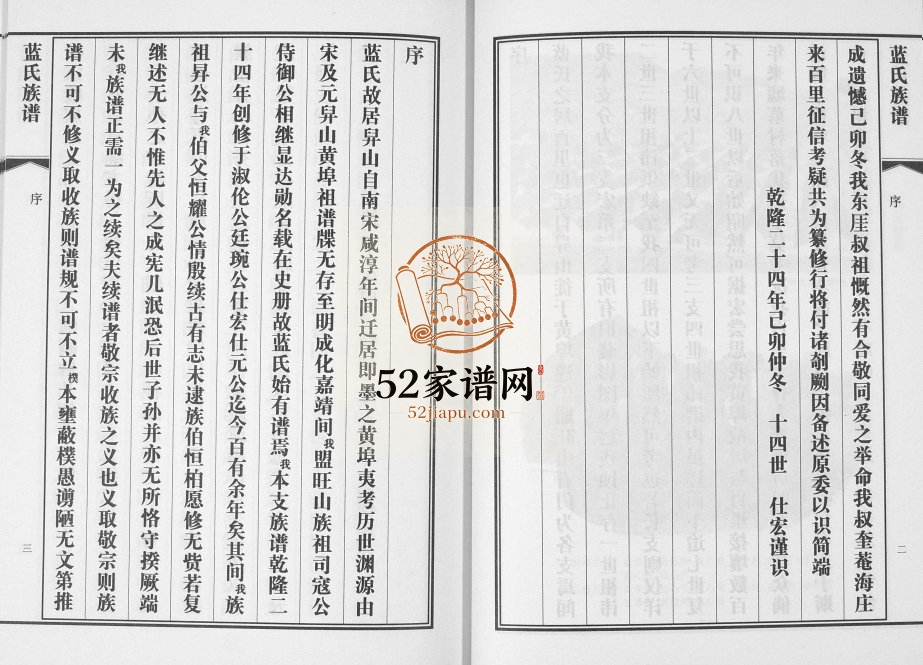 蓝氏族谱
序
二
成遗憾己卯冬我东厓叔祖慨然有合敬同爱之举命我叔奎菴海庄
来百里征信考疑共为纂修行将付诸剞劂因备述原委以识简端
乾隆二十四年己卯仲冬 十四世 仕宏谨识
序
蓝氏故居昇山自南宋咸淳年间迁居即墨之黄埠夷考历世渊源由
宋及元昇山黄埠祖谱牒无存至明成化嘉靖间我盟旺山族祖司寇公
侍御公相继显达勋名载在史册故蓝氏始有谱焉我本支族谱乾隆二
十四年创修于淑伦公廷琬公仕宏仕元公迄今百有余年矣其间我族
祖昇公与我伯父恒耀公情殷续古有志未逮族伯恒柏愿修无赀若复
继述无人不惟先人之成宪几泯恐后世子孙并亦无所恪守揆厥端
未我族谱正需一为之续矣夫续谱者敬宗收族之义也义取敬宗则族
谱不可不修义取收族则谱规不可不立樸本壅蔽樸愚谫陋无文第推
蓝氏族谱
序
三
52家谱网
52jiapu.com